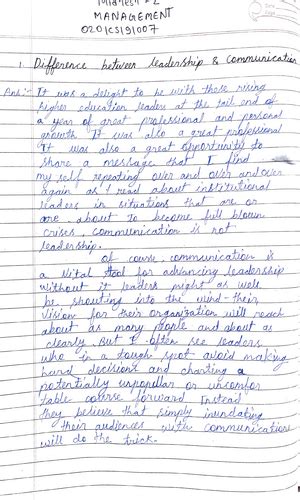 Midterm #2
MANAGEMENT
0201CS191007
1. Difference between leadership & communication
Ans:- It was a delight to be with those rising
higher education leaders at the tail end of
a year of great professional and personal
growth It was also a great professional
It was also a great opportunity to
share a message that I find
my self repeating over and over and over
again as I read about institutional
leaders in situations that are or
are about to become full blown
crises, communication is not
leadership.
Of course, communication is
a vital tool for advancing leadership
without it leaders might as well
be shouting into the wind - their
vision for their organization will reach
about as many people and about as
clearly. But I often see leaders
who in a tough spot avoid making
hard decisions and charting a
potentially unpopular or uncomfor
table course forward. Instead
they believe that simply inundating
their audiences with communications
will do the trick.